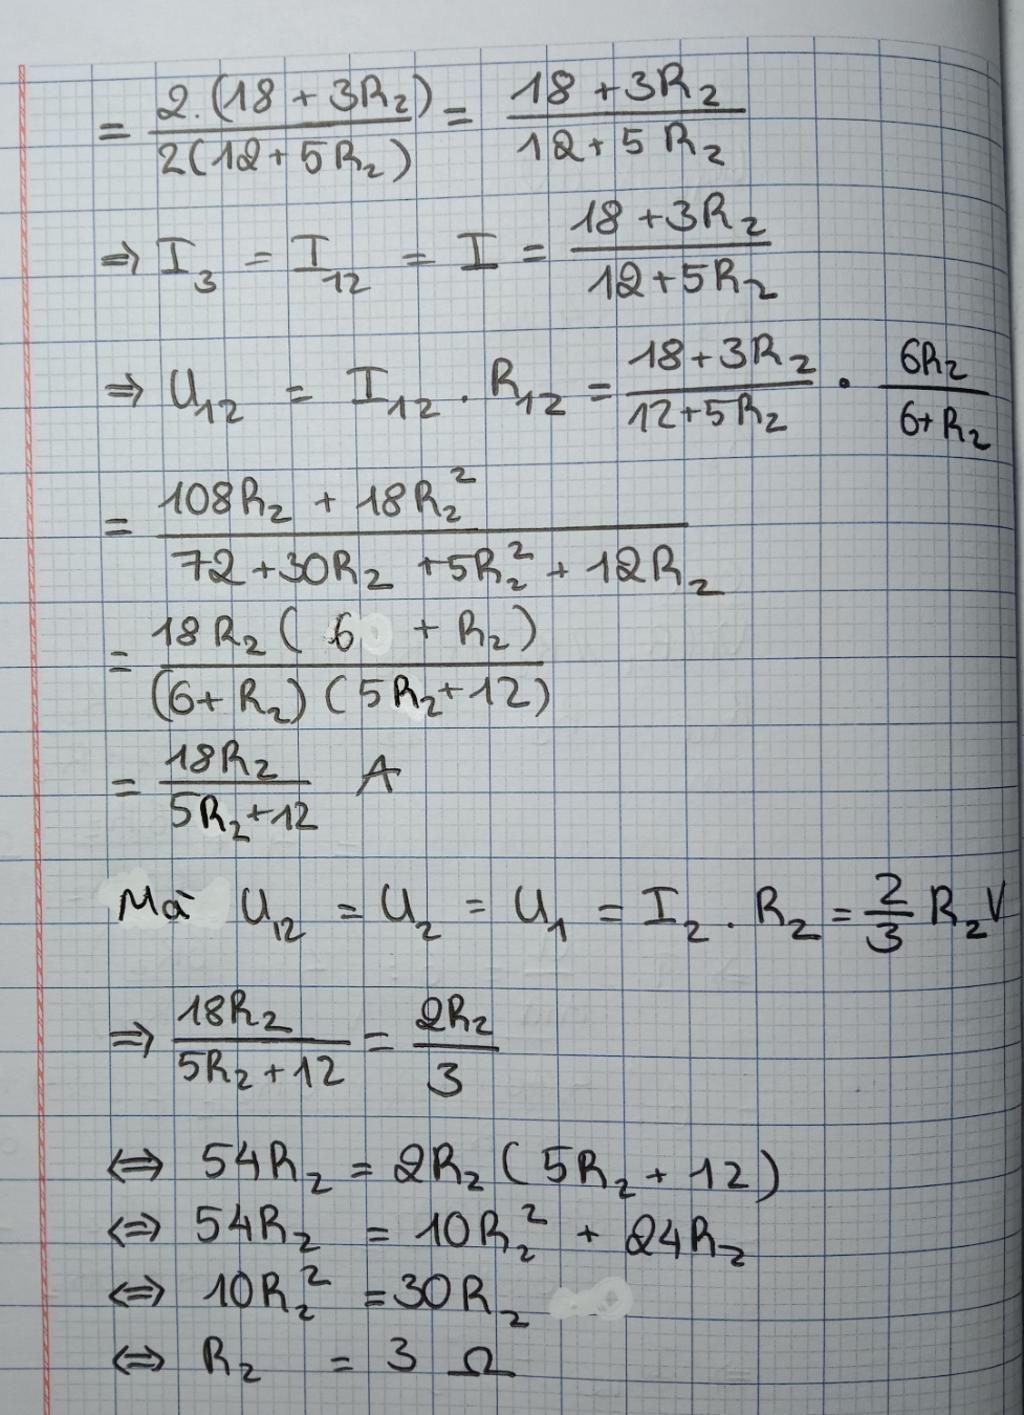 = \frac{2.(18 + 3R_2)}{2(12 + 5R_2)} = \frac{18 + 3R_2}{12 + 5R_2}
⇒ I_3 = I_{12} = I = \frac{18 + 3R_2}{12 + 5R_2}
⇒ U_{12} = I_{12} . R_{12} = \frac{18 + 3R_2}{12 + 5R_2} . \frac{6R_2}{6 + R_2}
= \frac{108R_2 + 18R_2^2}{72 + 30R_2 + 5R_2^2 + 12R_2}
= \frac{18R_2(6 + R_2)}{(6 + R_2)(5R_2 + 12)}
= \frac{18R_2}{5R_2 + 12} A
Mà U_{12} = U_2 = U_1 = I_2 . R_2 = \frac{2}{3} R_2 V
⇒ \frac{18R_2}{5R_2 + 12} = \frac{2R_2}{3}
⇔ 54R_2 = 2R_2(5R_2 + 12)
⇔ 54R_2 = 10R_2^2 + 24R_2
⇔ 10R_2^2 = 30R_2
⇔ R_2 = 3 Ω